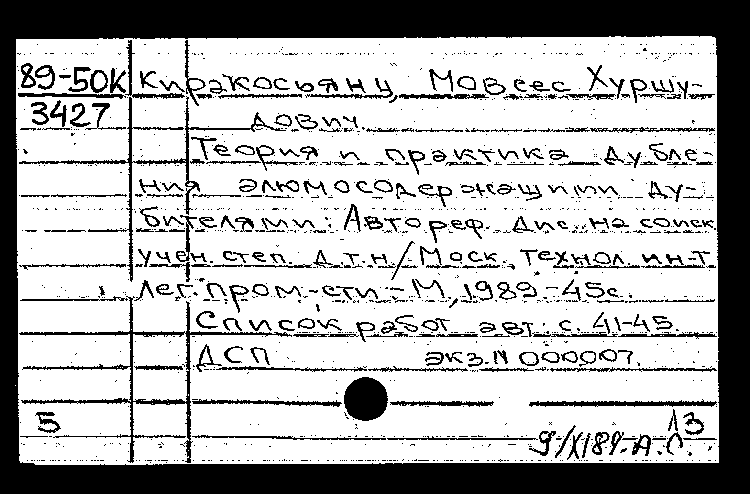 89-50К Киракосьянц, Мовсес Хуршу-
3427 дович.
Теория и практика дубле-
ния алюмосодержащими ду-
бителями: Автореф. дис. на соиск
учен. степ. д.т.н/Моск. технол. ин-т
лег. пром-сти. - М, 1989.-45с.
Список работ авт: с. 41-45.
ДСП экз. N 000007.
5 13
9/XI89. А.С.